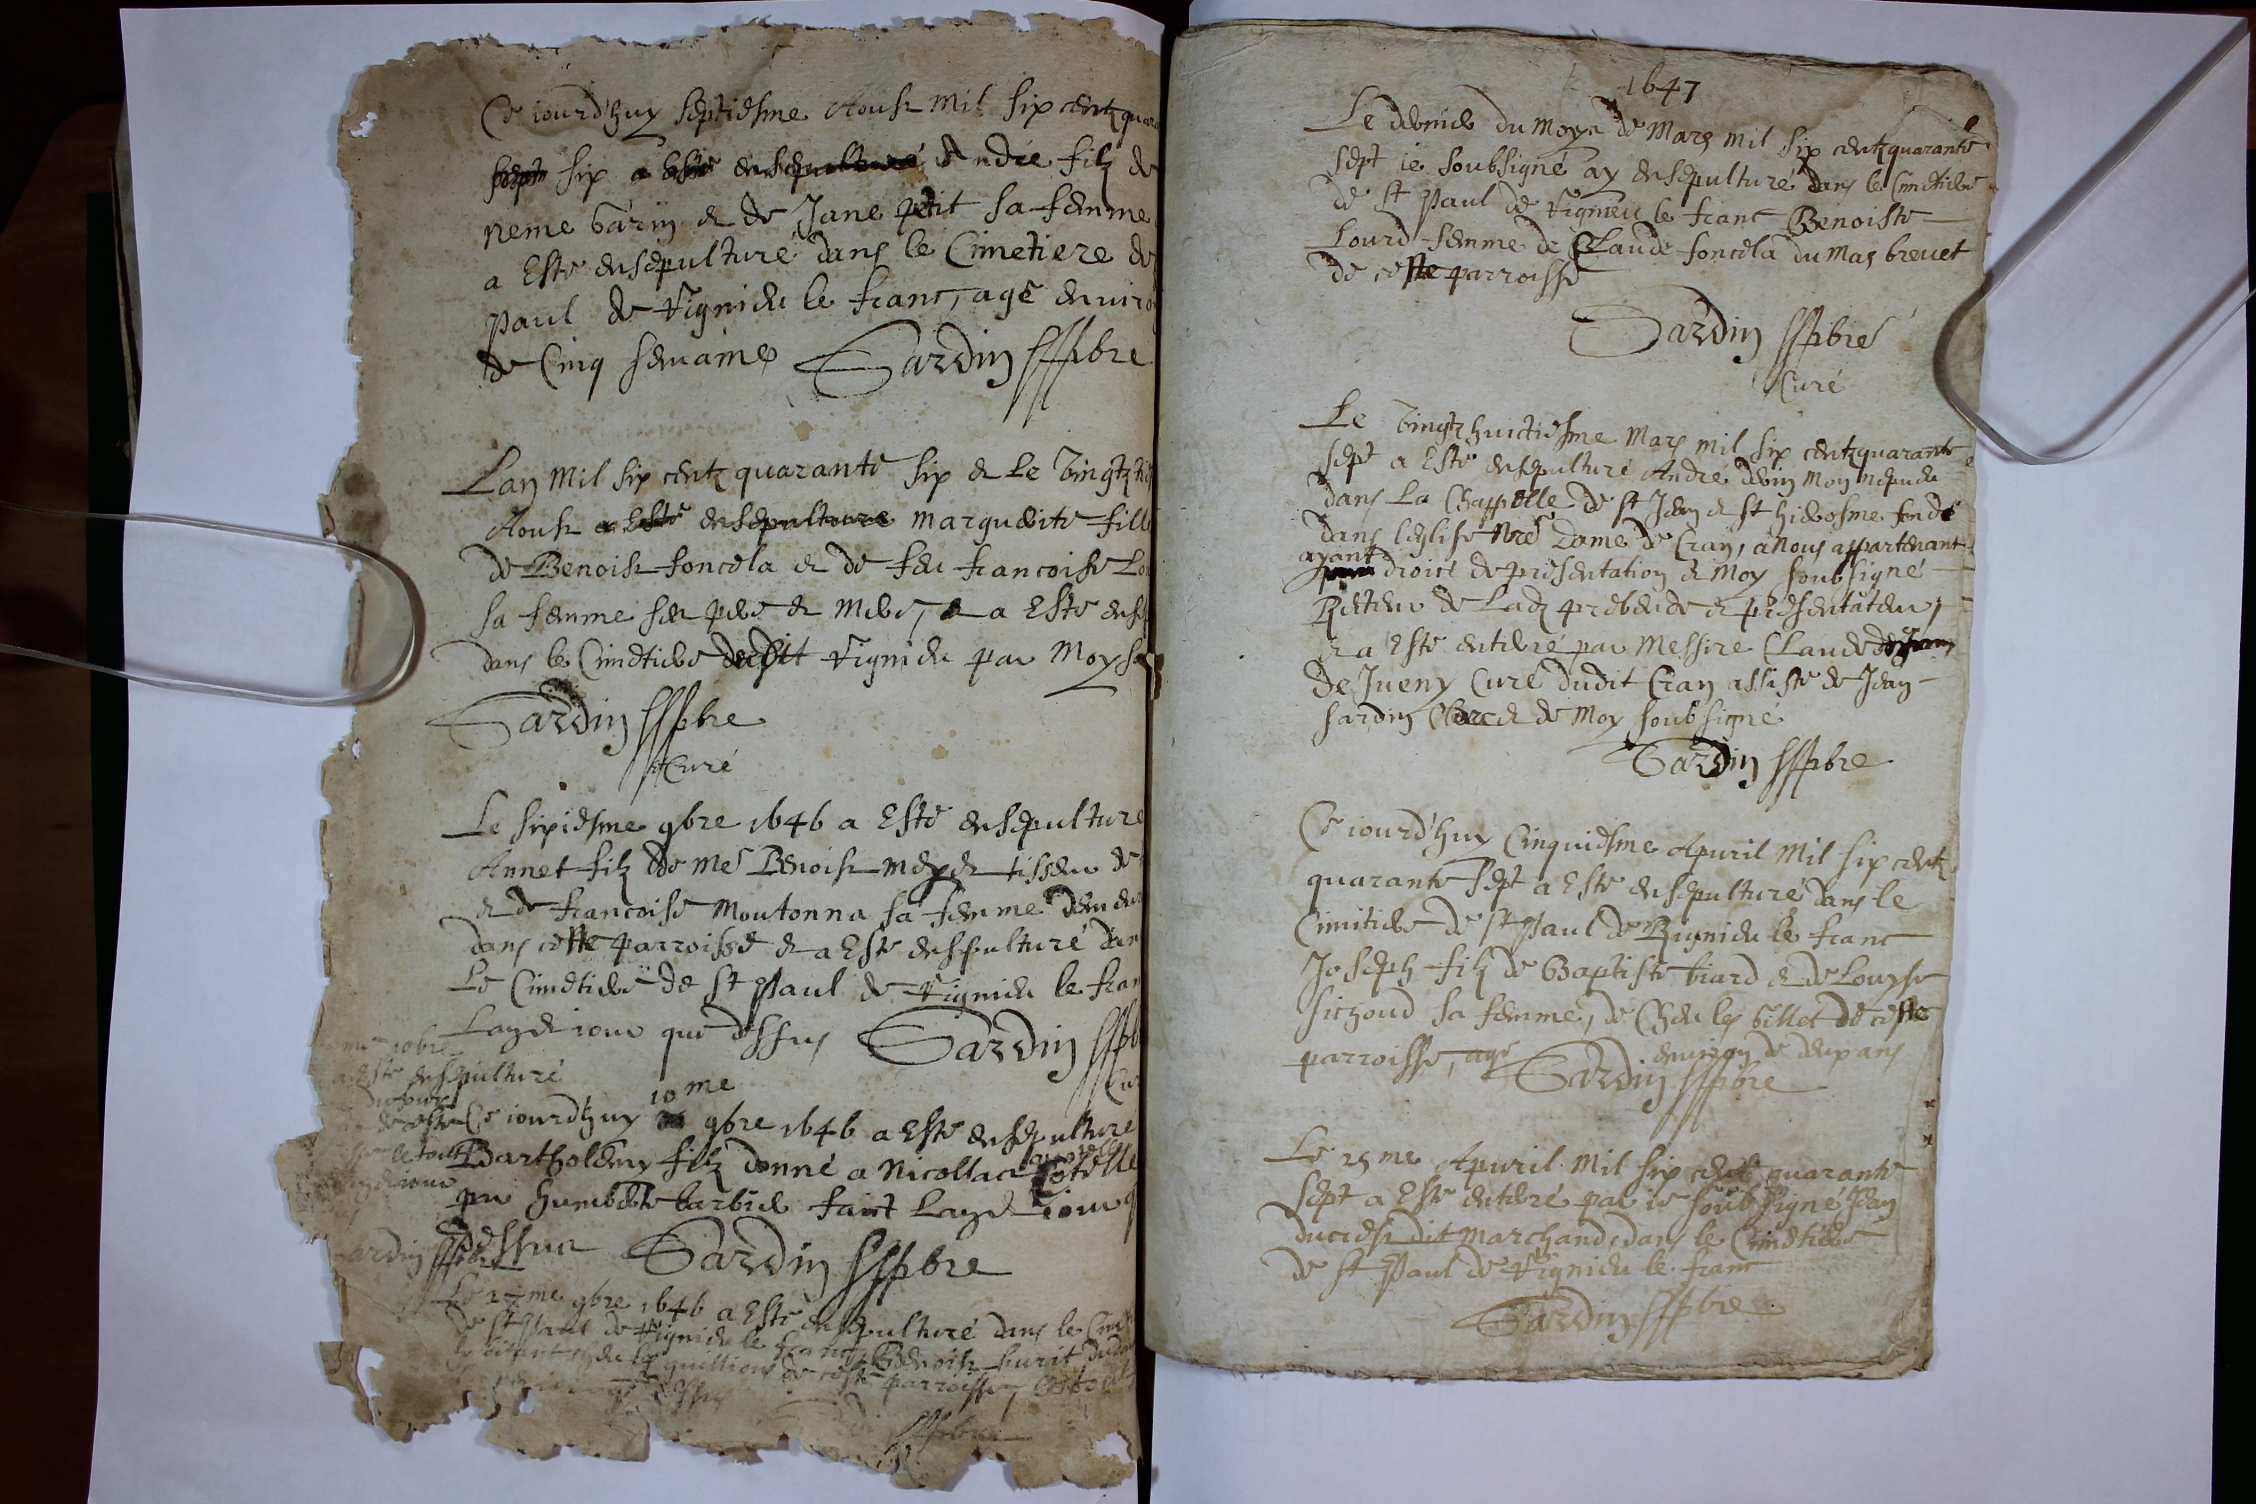 Ce iourd'huy septiesme Aoust mil six centz quar
six a esté ensepulturé Andre filz de
neme barin et de Jane petit sa femme
a Esté ensepulturé dans le Cimetiere de
Paul de Vignieu le franc, agé enviro
de Cinq semaines Sardin pbre
Lan mil six centz quarante six et le vingtz
Aoust a Esté ensepulturé marguerite fille
de Benoist foncela et de feu francoise
sa femme ses pere et mere, et a Esté
dans le Cimetiere dudit Vignieu par Moy
Sardin pbre
Curé
Le sixiesme 9bre 1646 a Esté ensepulturé
Annet filz de me Benoist tisseur de
et de francoise moutonna sa femme
dans ceste parroisse et a Esté ensepulturé dan
Le Cimetiere de st Paul de Vignieu le fran
Lan et iour que dessus Sardin pbre
Cur
10bre
a esté ensepulturé
de ceste
10me
Ce iourd'huy 9bre 1646 a Esté ensepulturé
Bartholemy filz donné a Nicollace
par humberte barbier faict Lan et iour q
dessus Sardin pbre
Sardin pbre
Le me 9bre 1646 a Esté ensepulturé dans le Cim
de st Paul de Vignieu le franc Benoist
de ceste parroisse
1647
Le dernier du moys de Mars mil six centz quarante
sept ie soubsigné ay ensepulturé dans le Cimetiere
de st Paul de Vignieu le franc Benoiste
Lourd femme de Claude foncela du Mas brevet
de ceste parroisse
Sardin pbre
Curé
Le vingtz huictiesme Mars mil six centz quarante
sept a Esté ensepulturé André devin mon nepveu
dans La Chappelle de st Jean et st hierosme fondé
dans leglise nre Dame de Cran, a nous appartenant
ayant droict de presentation et Moy soubsigné
Recteur de Ladz prebende et presentateur,
et a Esté enterré par Messire Claude
De Jueny Curé dudit Cran assisté de Jean
sardin Clerc et de Moy soubsigné
Sardin pbre
Ce iourd'huy Cinquiesme Apuril Mil six centz
quarante sept a Esté ensepulturé dans le
Cimitiere de st Paul de Vignieu le franc
Joseph filz de Baptiste biard et de Louyse
sichoud sa femme, de Chez les billet de ceste
parroisse, agé environ de deux ans
Sardin pbre
Le 25me Apuril Mil six centz quarante
sept a Esté enterré par ie soubsigné Jean
ducrest dit marchand dans le Cimetiere
de st Paul de Vignieu le franc
Sardin pbre